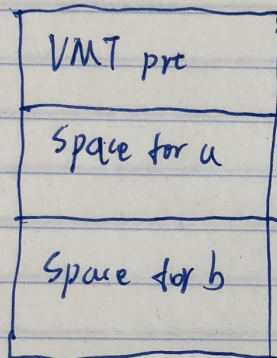 VMT pre
Space for a
Space for b